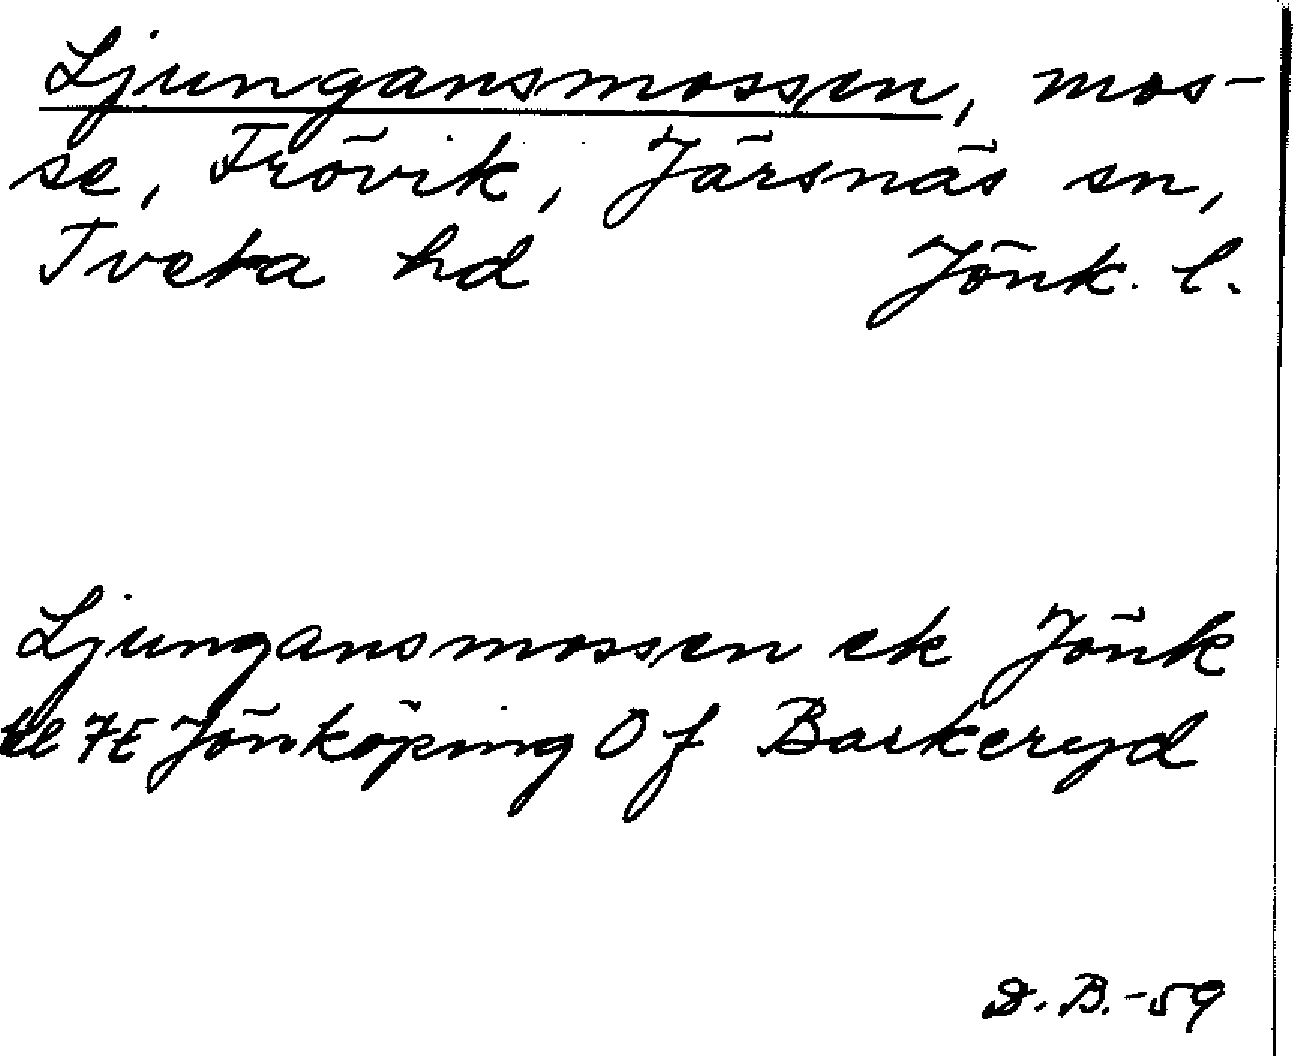 Ljungansmossen, mos-
se, Frövik, Järsnäs sn,
Tveta hd Jönk. l.
Ljungansmossen ek Jönk
bl 7E Jönköping Of Barkeryd
D. B. -59